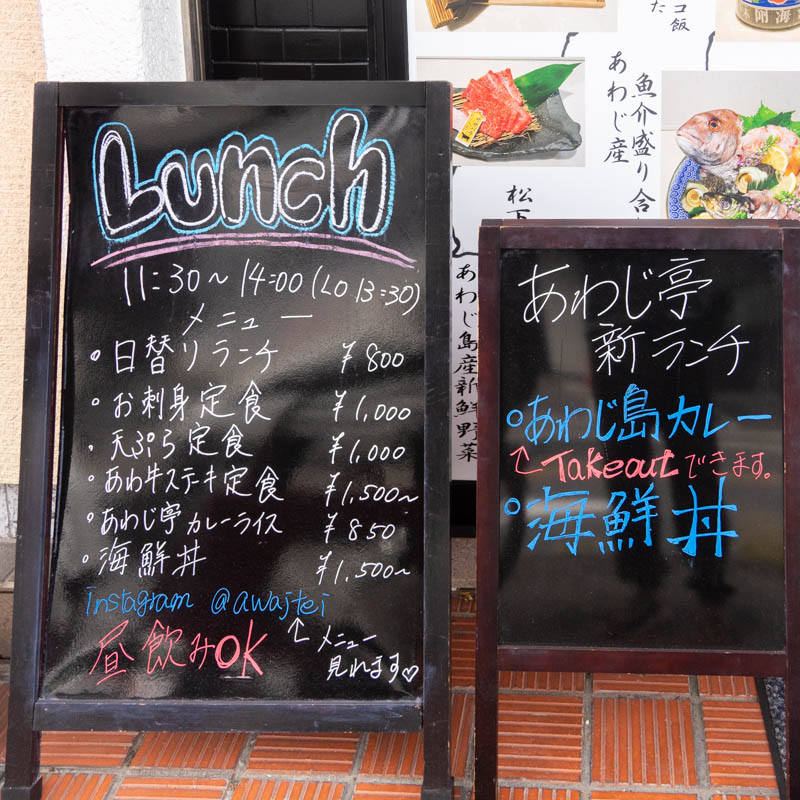 Lunch
11:30～14:00(LO 13:30)
メニュー
・日替りランチ ¥800
・お刺身定食 ¥1,000
・天ぷら定食 ¥1,000
・あわ牛ステーキ定食 ¥1,500～
・あわじ亭カレーライス ¥850
・海鮮丼 ¥1,500～
instagram @awajtei
昼飲みOK
↑メニュー
見れます♡
あわじ亭
新ランチ
・あわじ島カレー
↑Takeoutできます。
・海鮮丼
コ飯
た
魚介盛り合
あわじ産
松下
あわじ島産新鮮野菜